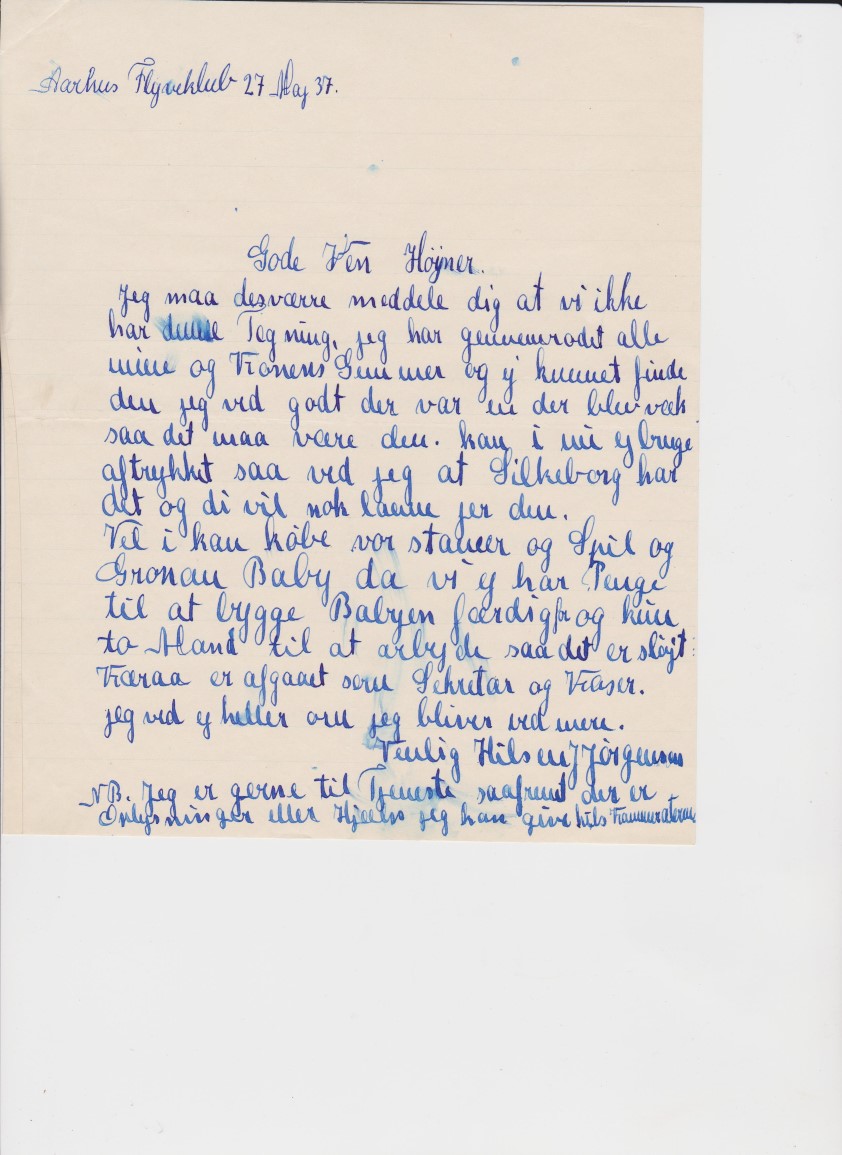 Aarhus Flyveklub 27 Maj 37.
Gode Ven Höjner.
Jeg maa desværre meddele dig at vi ikke
har denne Tegning, jeg har gennemrodet alle
mine og Konens Gemmer og ej kunnet finde
den jeg ved godt der var en der blev væk
saa det maa være den. kan i nu ej bruge
aftrykket saa ved jeg at Silkeborg har
det og di vil nok laane jer den.
Vil i kan köbe vor stamer og Spil og
Gronau Baby da vi ej har Penge
til at bygge Babyen færdig og kun
to Mand til at arbejde saa det er slöjt.
Kæraa er afgaaet som Sekretær og Kaser.
jeg ved ej heller om jeg bliver ved mere.
Venlig Hilsen J Jörgensen
NB. Jeg er gerne til Tjeneste saafremt der er
Oplysninger eller Hjælp jeg kan give hils Kammeraterne